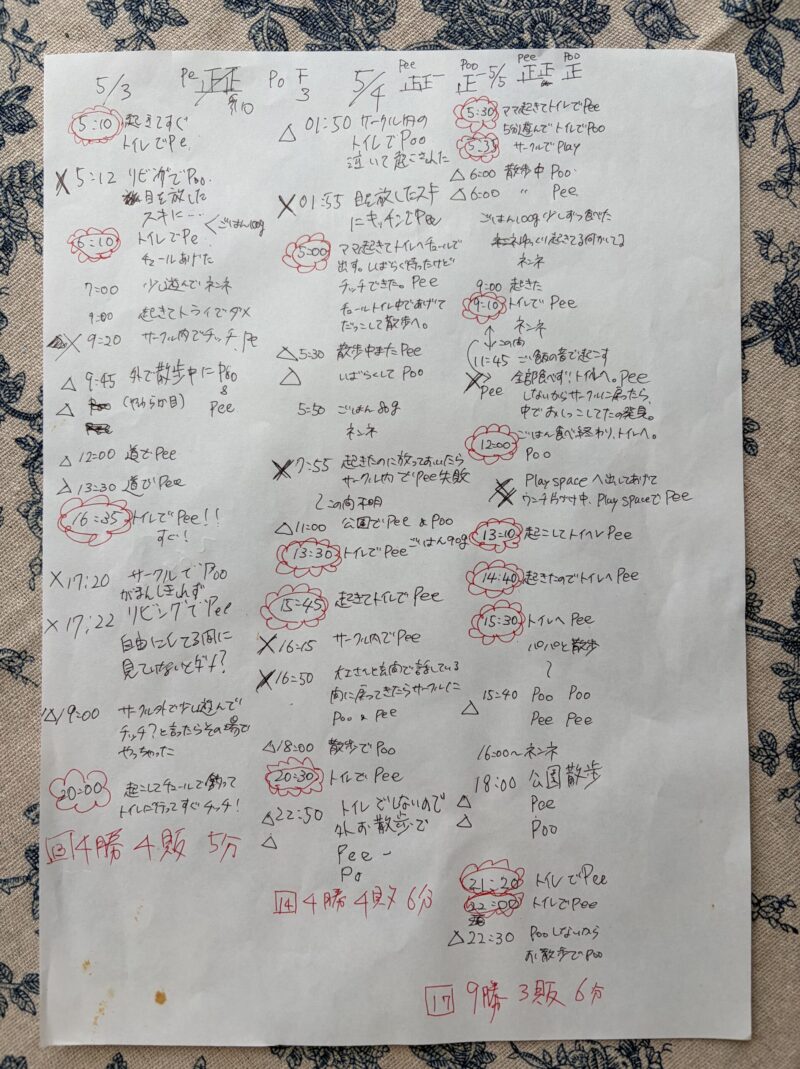 5/3 Pe 正正 Po 下
3
5:10 起きてすぐ
トイレでPe.
×5:12 リビングでPoo.
目を放した
スキに…
6:10 トイレでPe <ごはん100g
チュールあげた
7:00 少し遊んでネンネ
9:00 起きてトライでダメ
×9:20 サークル内でチッチ. Pe
△9:45 外で散歩中にPoo
&
△ (やわらか目) Pee
△12:00 道でPee
△13:30 道でPee
16:35 トイレでPee!!
すぐ!
×17:20 サークルでPoo
がまんしきれず
×17:22 リビングでPee
自由にして3間に
見ていないとダメ?
△19:00 サークル外で少し遊んで
チッチ?と言ったらその場で
やっちゃった
20:00 起こしてチュールで釣って
トイレに行ってすぐチッチ!
13 4勝 4敗 5分
5/4 Pee 正正一 Poo 正一
△01:50 サークル内の
トイレでPoo
泣いて起こさんた
×01:55 目を放したスキ
にキッチンでPee
5:00 ママ起きてトイレへチュールで
出す。しばらく待ったけど
チッチできた。Pee
チュールトイレ中であげて
だっこして散歩へ。
△5:30 散歩中またPee
△ しばらくして Poo
5:50 ごはん 80g
ネンネ
×7:55 起きたのに放っておいたら
サークル内でPee失敗
〜この間不明
△11:00 公園でPee & Poo
13:30 トイレでPee ごはん90g
15:45 起きてトイレでPee
×16:15 サークル内でPee
×16:50 大工さんと玄関で話している
間に戻ってきたらサークルに
Poo & Pee
△18:00 散歩でPoo
20:30 トイレでPee
△22:50 トイレでしないので
外お散歩で
△ Pee
Po
14 4勝 4敗 6分
5/5 Pee 正正 Poo 正
5:30 ママ起きてトイレでPee
5分遊んでトイレでPoo
5:35 サークルでPlay
△6:00 散歩中 Poo
△6:00 〃 Pee
ごはん100g 少しずつ食べた
起きてる何かしてる
ネンネ
9:00 起きた
9:10 トイレでPee
ネンネ
この間
11:45 ご飯の音で起こす
× 全部食べず!トイレへ。Pee
Pee しないからサークルに戻ったら、
中でおしっこしてたの発見。
12:00 ごはん食べ終わり、トイレへ。
Poo
× Play spaceへ出してあげて
ウンチ片付け中、Play spaceでPee
13:10 起こしてトイレへPee
14:40 起きたのでトイレへPee
15:30 トイレへPee
パパと散歩
〜
△15:40 Poo Poo
Pee Pee
16:00〜ネンネ
18:00 公園散歩
△ Pee
△ Poo
21:20 トイレでPee
22:00 トイレでPee
△22:30 Pooしないから
お散歩でPoo
17 9勝 3敗 6分